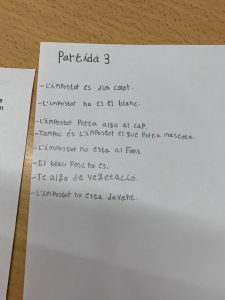 Partida 3
-L'impostor és d'un color.
-L'impostor no es el blanc.
-L'impostor Porta algo al cap.
-Tampoc és L'impostor el que Porta mascota.
-L'impostor no esta al Fons.
-El blau Fosc ho és.
-Te algo de vegetació.
-L'impostor no esta davant.